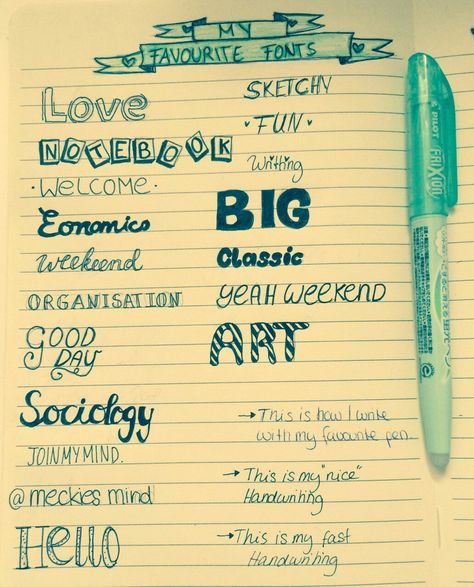 MY
FAVOURITE FONTS
Love
NOTEBOOK
WELCOME
Eonomics
weekeend
ORGANISATION
GOOD
DAY
Sociology
JOINMYMIND.
@meckies mind
Hello
SKETCHY
FUN
Writting
BIG
Classic
YEAH WEEKEND
ART
→This is how I write
with my favourite pen.
→This is my "nice"
Handwriting
→This is my fast
Handwriting
PILOT
FRIXION